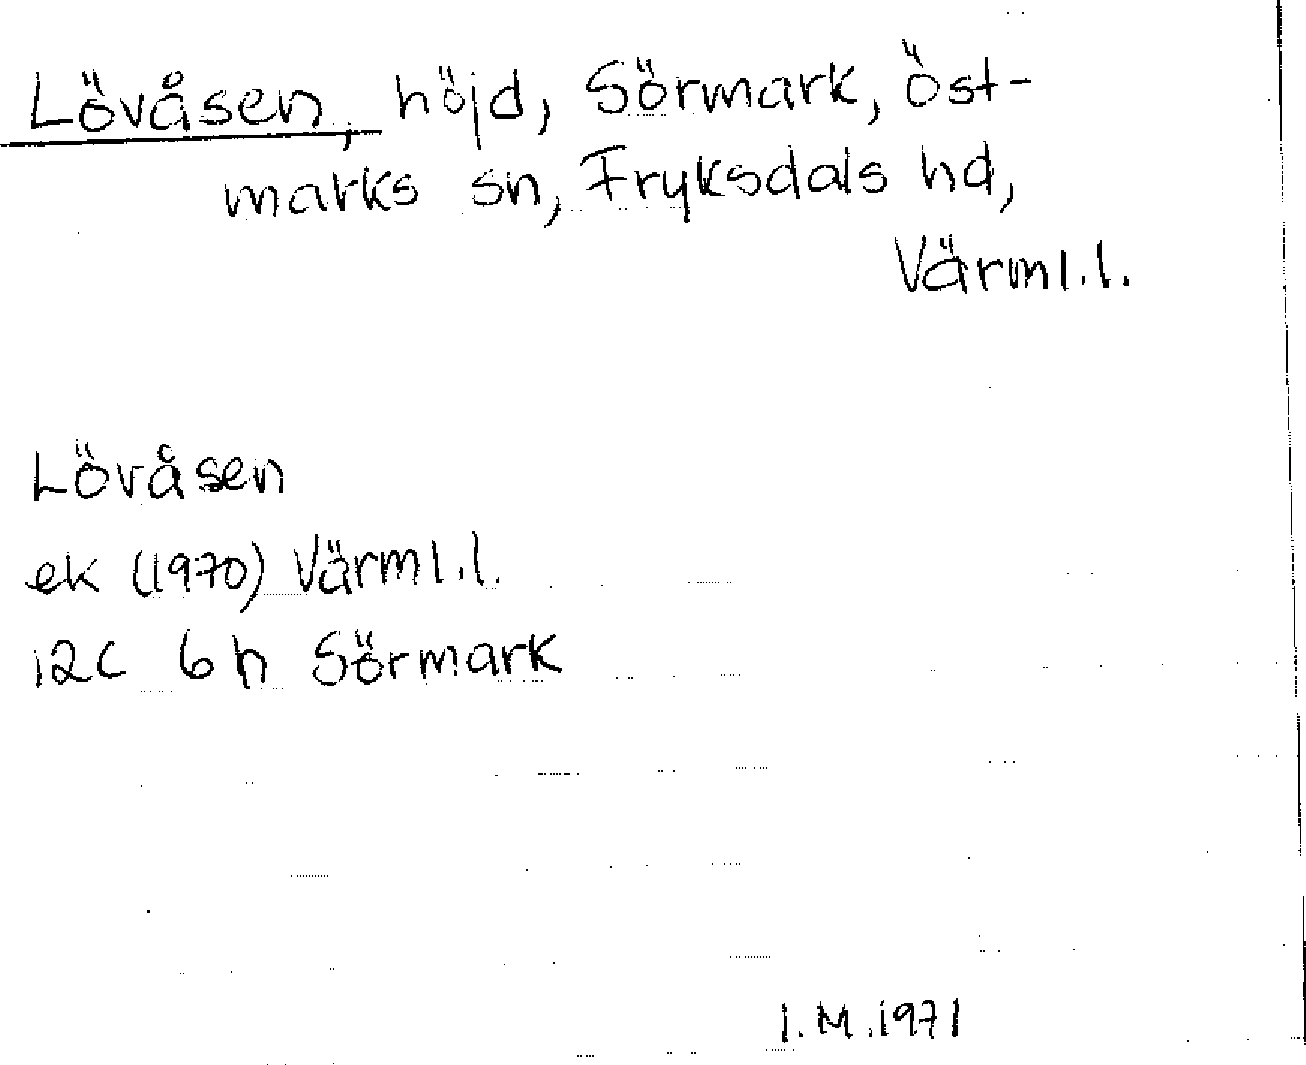 Lövåsen, höjd, Sörmark, Öst-
marks sn, Fryksdals hd,
Värml.l.
Lövåsen
ek (1970) Värml.l.
12C 6h Sörmark
I.M.1971